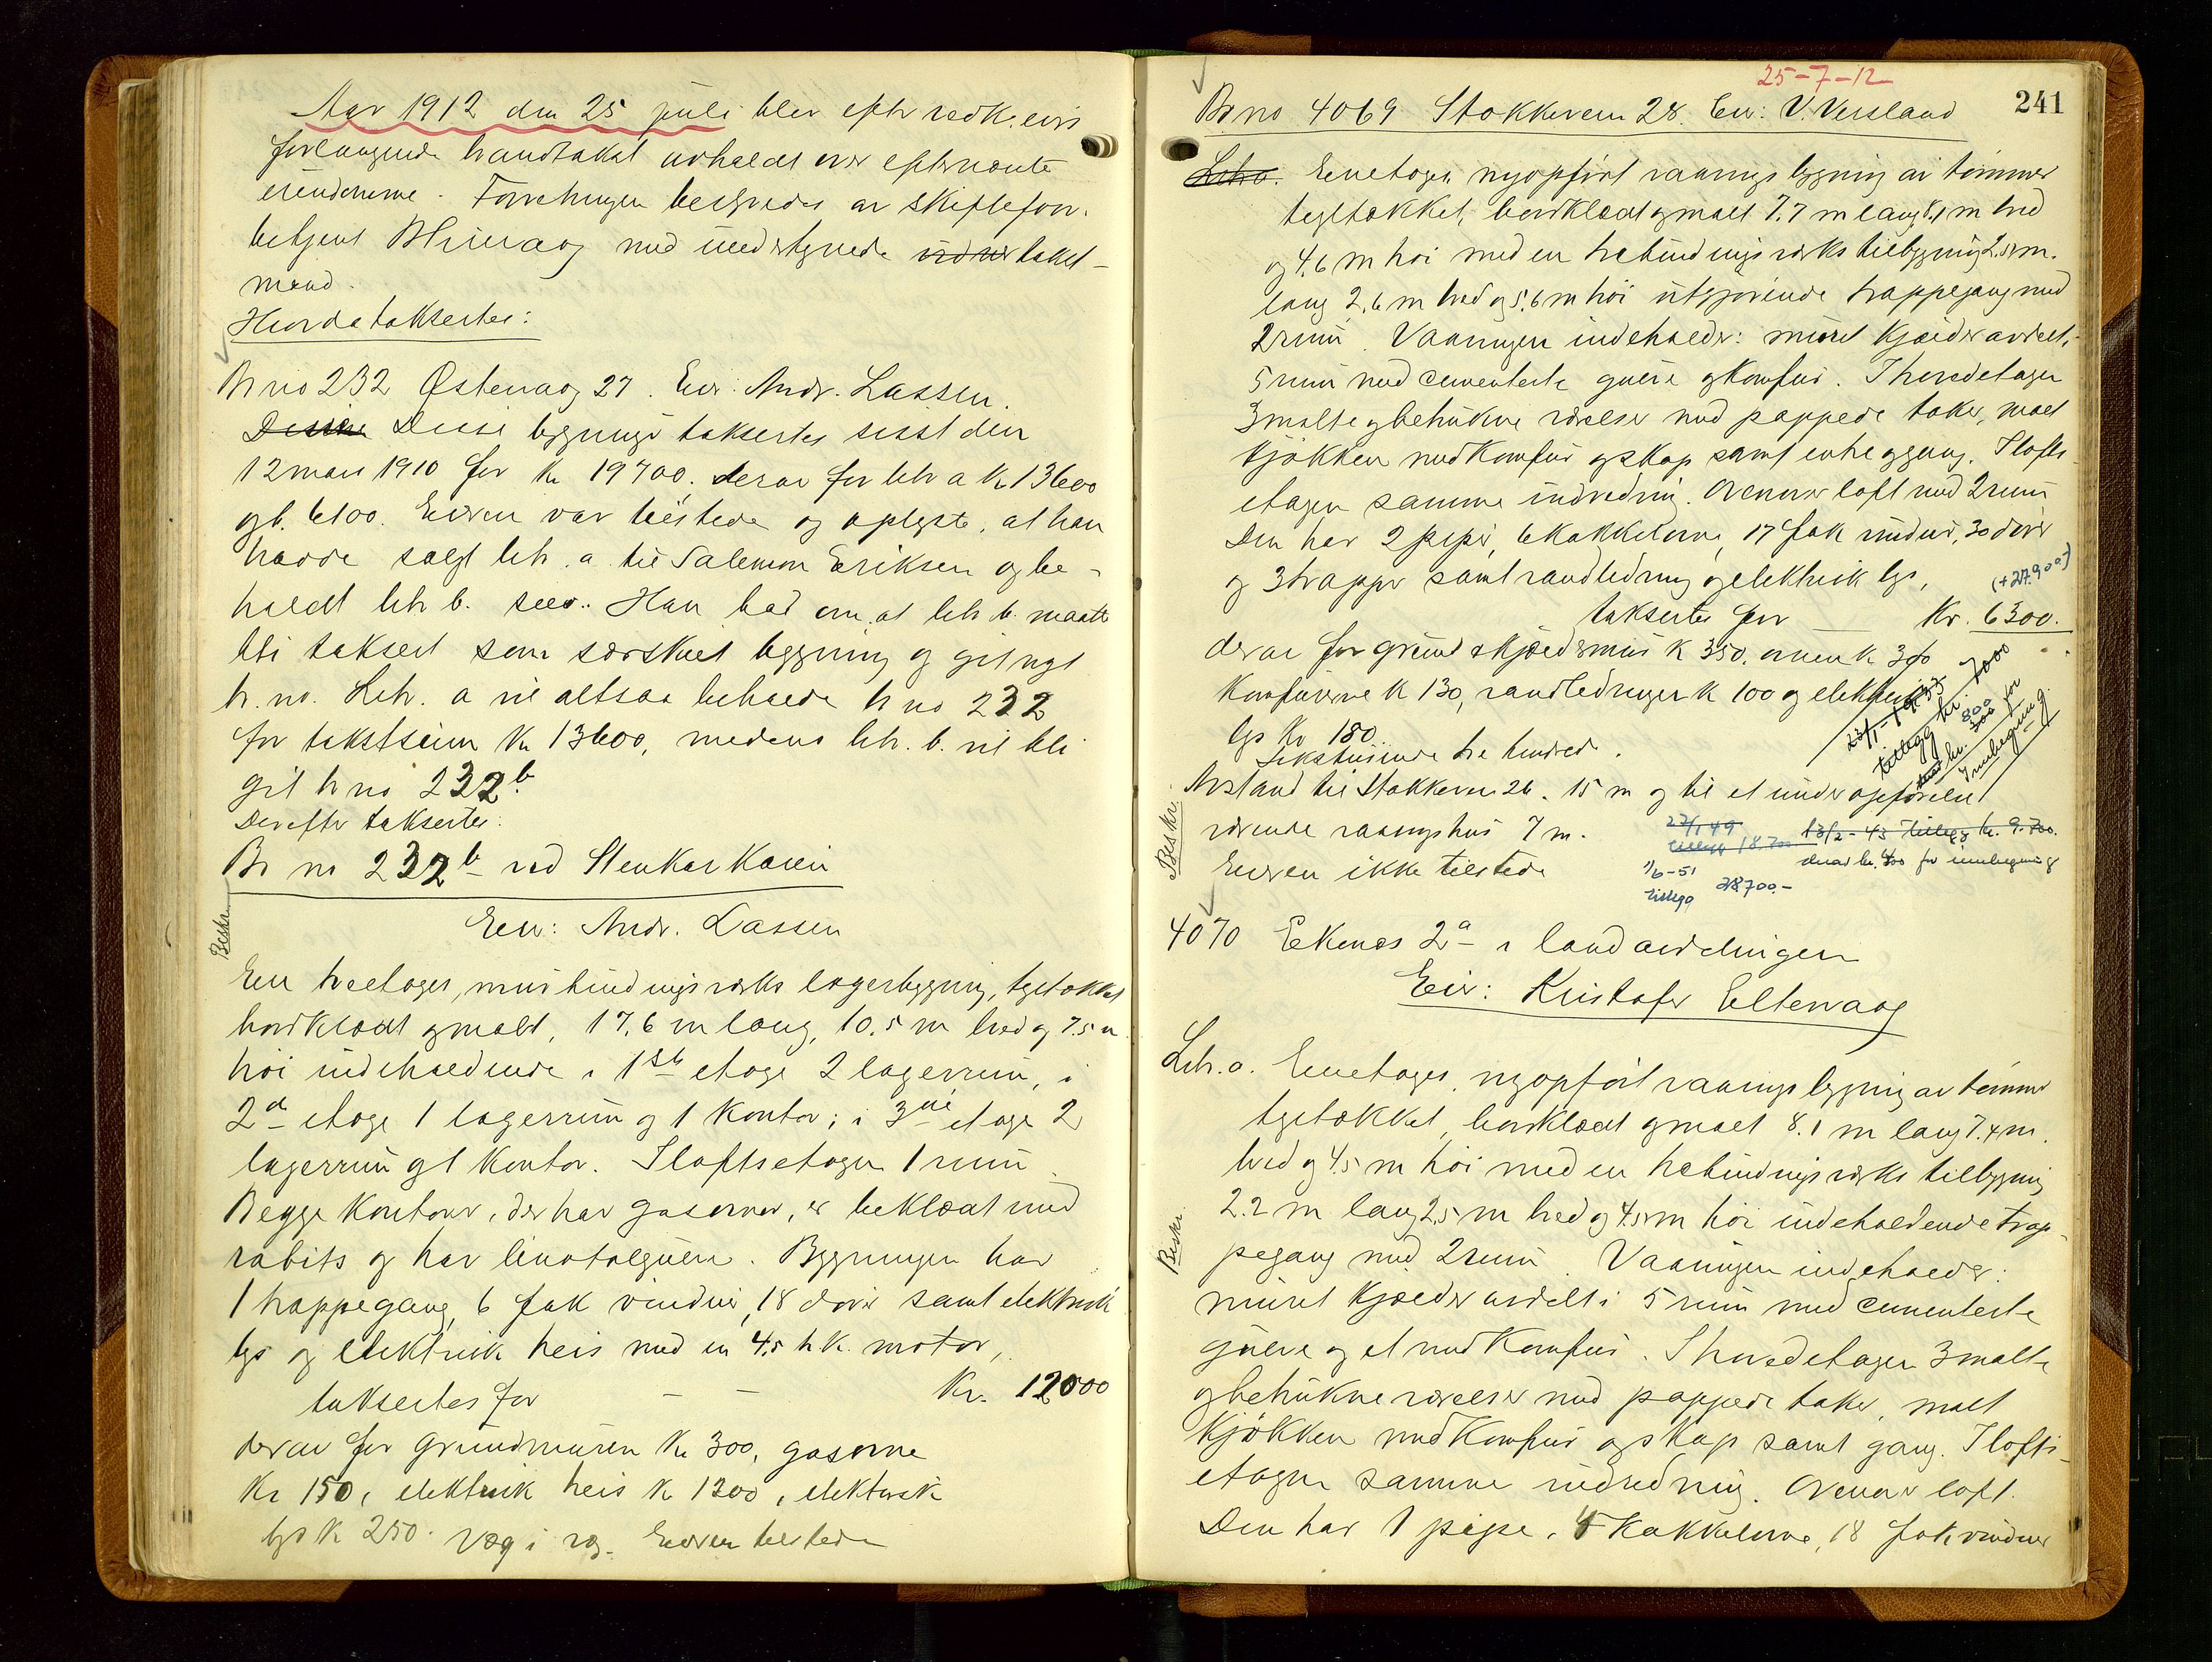 Aar 1912 den 25 juli blev efter vedk. eiers
forlangende branntakst avholdt over efternævnte
eiendomme. Forretningen bestyredes av skiftefor.
betjent med undertegnede takst-
mænd.
Hvorda taksertes:
Br no 232 Østervaag 27. Eier: Andr. Lassen.
Disse bygninger taksertes sist den
12 mars 1910 for Kr 19700, derav for litr a Kr 13600
og b. 6100. Eieren var tilstede og oplyste, at han
havde solgt litr. a til Salemon Eriksen og be-
holdt litr b. selv. Han bad om at litr b. maatte
bli taksert som særskilt bygning og git nyt
br. no. Litr. a vil altsaa beholde br no 232
for takstsum Kr 13600, medens litr. b. vil bli
git br no 232b
Derefter taksertes:
Br no 232b ved Stenkarkaien
Eier: Andr. Lassen
Beskr.
En treetages, mur bindingsverks lagerbygning, tegltækket
bordklædt og malt, 17,6 m lang, 10.5 m bred og 7.5 m
høi indeholdende i 1ste etage 2 lagerrum, i
2d etage 1 lagerrum og 1 kontor; i 3die etage 2
lagerrum og 1 kontor. I loftsetagen 1 rum
Begge kontorer, der har gasovner, er beklædt med
rabits og har linotolgulve. Bygningen har
1 trappegang, 6 fak vinduer, 18 dører samt elektrisk
lys og elektrisk heis med en 4,5 h.k. motor,
taksertes for — — Kr. 12000
derav for grundmuren Kr 300, gasovne
Kr 150, elektrisk heis Kr 1300, elektrisk
lys Kr 250. Væg i væg. Eieren tilstede
25-7-12
241
Br no 4069 Stokkaveien 28. Eier: V. Versland
Litr a. Enetages, nyopført vaanings bygning av tømmer
tegltækket, bordklædt og malt 7.7 m lang 8,1 m bred
og 4,6 m høi med en trebindingsverks tilbygning 2.5 m.
lang 2,6 m bred og 5,6 m høi utgjørende trappegang med
2 rum. Vaaningen indeholder: muret kjælder avdelt i
5 rum med cementerte gulve og komfur. I hovedetagen
3 malte og betrukne værelser med pappede taker, malt
kjøkken med komfur og skap samt entre og gang. I lofts-
etagen samme indredning. Ovenover loft med 2 rum
Den har 2 piper, 6 kakkelovne, 17 fak vinduer, 30 dører
og 3 trapper samt vandledning og elektrisk lys,
(+27.900)
taksertes for — Kr. 6300.
derav for grund & kjældermur Kr 350. ovnen Kr 300
Komfurerne Kr 130, vandledningen Kr 100 og elektrisk
lys Kr 180
Sekstusinde tre hundrede.
tillegg kr. 7000
derav kr. 300 for
innhegning.
800
Beskr.
Avstand til Stokkaveien 26. 15 m og til et under opførelse
værende vaaningshus 7 m.
Eieren ikke tilstede
27/1 49
tillegg 18.700
13/2-43 Tillegg kr. 9.700.
derav kr. 400 for innhegning
1/6-51
tillegg 28700.-
4070 Ekenæs 2a i landavdelingen
Eier: Kristofer Eltervaag
Litr. a. Enetages, nyopført vaanings bygning av tømmer
tegltækket, bordklædt og malt 8.1 m lang 7.4 m.
bred og 4,5 m høi med en trebindingsverks tilbygning
2.2 m lang 2,5 m bred og 4.5 m høi indeholdende trap-
Beskr.
pegang med 2 rum. Vaaningen indeholder:
muret kjælder avdelt i 5 rum med cementerte
gulve og et med komfur. I hovedetagen 3 malte
og betrukne værelser med pappede taker, malt
kjøkken med komfur og skap samt gang. I lofts-
etagen samme indredning. Ovenover loft.
Den har 1 pipe, 4 kakkelovne, 18 fak vinduer